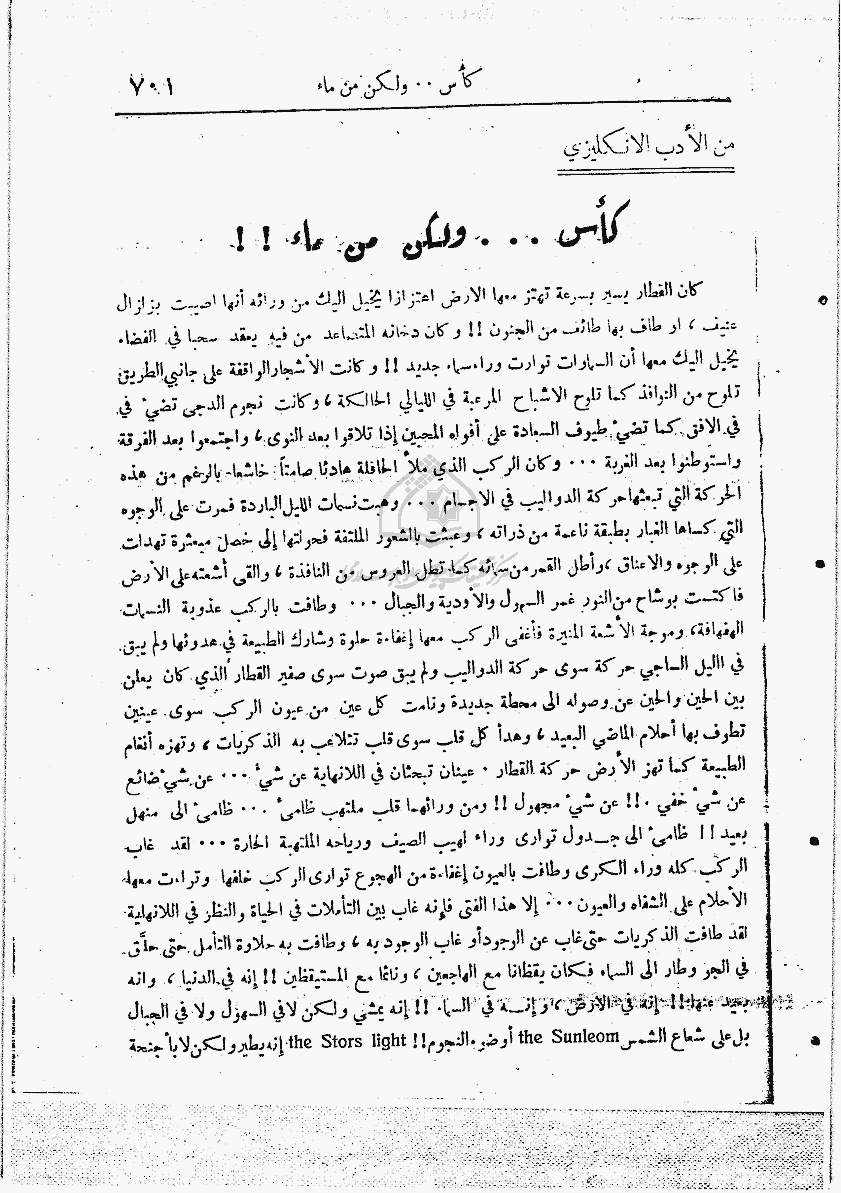 كأس ٠٠ ولكن من ماء ٧٠١
من الأدب الانكليزي
كأس ٠٠٠ ولكن من ماء !!
كان القطار يسير بسرعة تهتز معها الارض اعتزازا يخيل اليك من ورائه أنها اصيبت بزلزال
عنيف ، او طاف بها طائف من الجنون !! وكان دخانه المتصاعد من فيه يعقد سحبا في الفضاء
يخيل اليك معها أن السماوات توارت وراء سماء جديد !! وكانت الأشجار الواقفة على جانبي الطريق
تلوح من النوافذ كما تلوح الاشباح المرعبة في الليالي الحالكة ، وكانت نجوم الدجى تضيء في
في الافق كما تضيء طيوف السعادة على أفواه المحبين إذا تلاقوا بعد النوى ، واجتمعوا بعد الفرقة
واستوطنوا بعد الغربة ٠٠٠ وكان الركب الذي ملأ الحافلة هادئا صامتاً خاشعا بالرغم من هذه
الحركة التي تبعثها حركة الدواليب في الاجسام ٠٠٠ وهبت نسمات الليل الباردة فمرت على الوجوه
التي كساها الغبار بطبقة ناعمة من ذراته ، وعبثت بالشعور الملتفة فحولتها إلى خصل مبعثرة تهدلت
على الوجوه والاعناق ، وأطل القمر من سمائه كما تطل العروس من النافذة ، والقى أشعته على الأرض
فاكتست بوشاح من النور غمر السهول والأودية والجبال ٠٠٠ وطافت بالركب عذوبة النسمات
الهفهافة، وموجة الأشعة المنيرة فأغفى الركب معها إغفاءة حلوة وشارك الطبيعة في هدوئها ولم يبق
في الليل الساجي حركة سوى حركة الدواليب ولم يبق صوت سوى صفير القطار الذي كان يعلن
بين الحين والحين عن وصوله الى محطة جديدة ونامت كل عين من عيون الركب سوى عينين
تطوف بها أحلام الماضي البعيد ، وهدأ كل قلب سوى قلب تتلاعب به الذكريات ، وتهزه أنغام
الطبيعة كما تهز الأرض حركة القطار ٠ عينان تبحثان في اللانهاية عن شيء ٠٠٠ عن شيء ضائع
عن شيء خفي ٠!! عن شيء مجهول !! ومن ورائهما قلب ملتهب ظامىء ٠٠٠ ظامىء الى منهل
بعيد !! ظامىء الى جدول توارى وراء لهيب الصيف ورياحه الملتهبة الحارة ٠٠٠ لقد غاب
الركب كله وراء الكرى وطافت بالعيون إغفاءة من الهجوع توارى الركب خلفها وتراءت معها
الأحلام على الشفاه والعيون ٠٠٠ إلا هذا الفتى فإنه غاب بين التأملات في الحياة والنظر في اللانهاية
لقد طافت الذكريات حتى غاب عن الوجود أو غاب الوجود به ، وطافت به حلاوة التأمل حتى حلَّق
في الجو وطار الى السماء فكان يقظانا مع الهاجعين ، ونائما مع المستيقظين !! إنه في الدنيا ، وانه
بعيد عنها !! إنه في الأرض ، وإنه في السماء !! إنه يمشي ولكن لا في السهول ولا في الجبال
بل على شعاع الشمس the Sunleom أو ضوء النجوم !! the Stors light إنه يطير ولكن لا بأجنحة